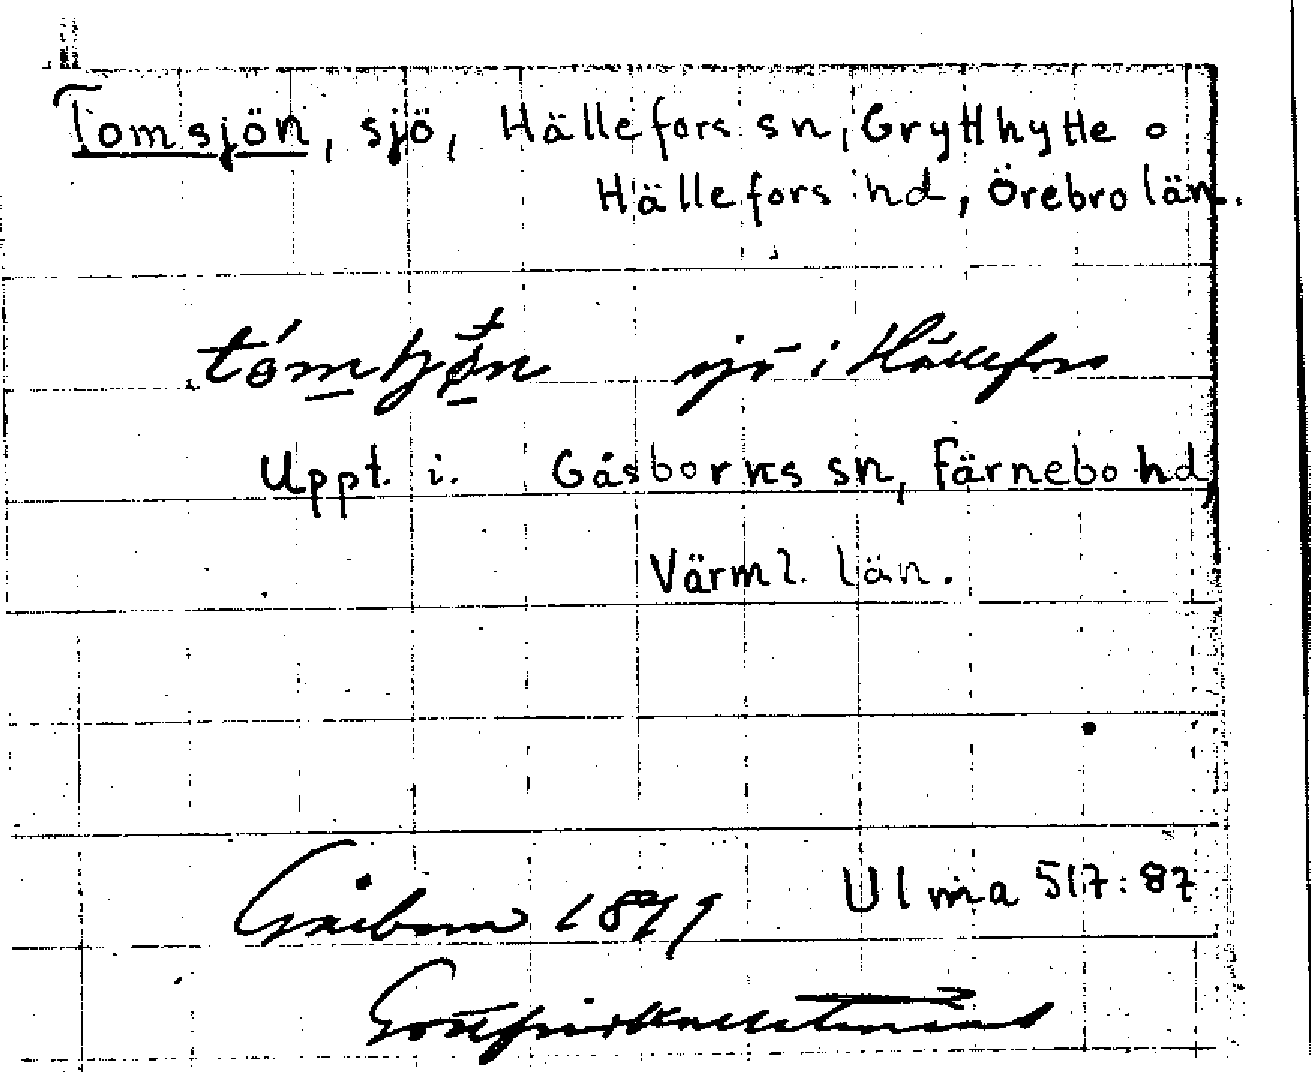 Tomsjön, sjö, Hällefors sn, Grythytte o
Hällefors hd, Örebro län.
sjö i Hällefors
Uppt. i. Gåsborns sn, Färnebo hd,
Värml. län.
Gåsborn 1879
Ulma 517:87
Gottfrid Kallstenius